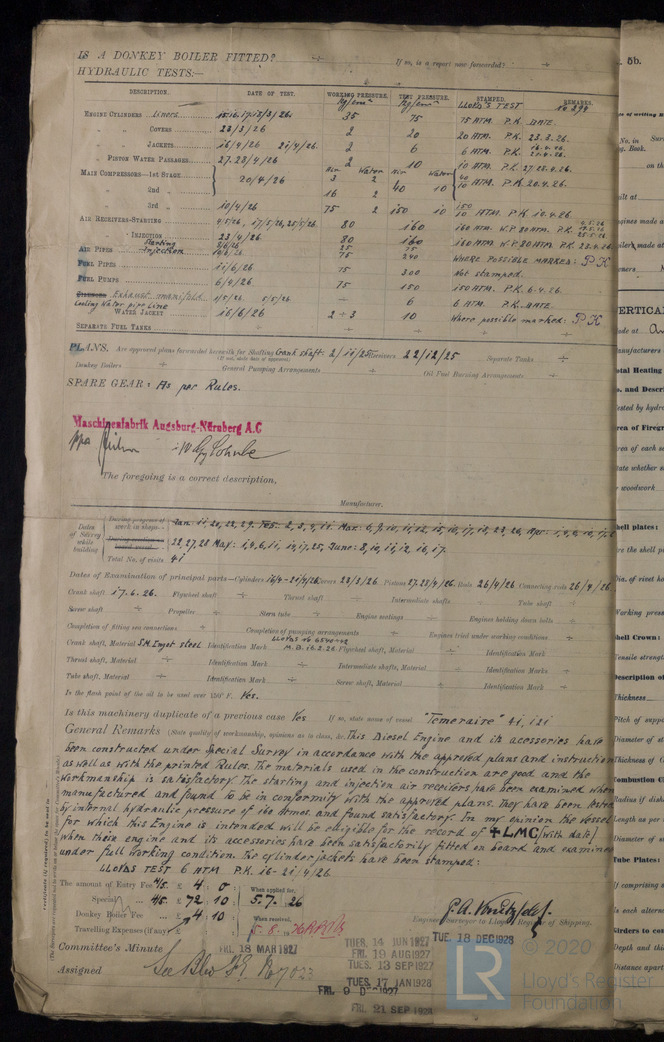 IS A DONKEY BOILER FITTED? ÷ If so, is a report now forwarded? ÷
HYDRAULIC TESTS:—
DESCRIPTION. DATE OF TEST. WORKING PRESSURE. TEST PRESSURE. STAMPED. REMARKS.
kg/cm² kg/cm² LLOYD'S TEST No 294
ENGINE CYLINDERS Liners 35 75 75 ATM. P.K. DATE.
" " COVERS 22/3/26 2 20 20 ATM. P.K. 22.3.26
" " JACKETS 16/4/26 21/4/26 2 6 6 ATM. P.K. 16.4.26 21.4.26
" PISTON WATER PASSAGES 27.28/4/26 2 10 10 ATM. P.K. 27.28.4.26.
Air Water Air Water
MAIN COMPRESSORS—1ST STAGE 20/4/26 3 2 ATM. P.K. 20.4.26.
" 2ND " 16 2 40 10
" 3RD " 10/4/26 75 2 150 10 150/10 ATM. P.K. 10.4.26.
AIR RECEIVERS—STARTING 4/5/26, 17/5/26, 25/5/26 80 160 160 ATM. W.P. 80 ATM. P.K.
" INJECTION 23/4/26 80 160 160 ATM. W.P. 80 ATM. P.K. 23.4.26
AIR PIPES Starting Injection 75 240 WHERE POSSIBLE MARKED: P K
FUEL PIPES 11/6/26 75 300 Not stamped.
FUEL PUMPS 6/4/26 75 150 150 ATM. P.K. 6.4.26.
Exhaust manifold 5/5/26 ÷ 6 6 ATM. P.K. DATE.
Cooling Water pipe Line
WATER JACKET 16/6/26 2 ÷ 3 10 Where possible marked: P K
SEPARATE FUEL TANKS ÷ ÷ ÷ ÷ ÷
PLANS. Are approved plans forwarded herewith for Shafting Crank shaft 2/11/25 Receivers 22/12/25 Separate Tanks ÷
(If not, state date of approval)
Donkey Boilers ÷ General Pumping Arrangements ÷ Oil Fuel Burning Arrangements ÷
SPARE GEAR: As per Rules.
Maschinenfabrik Augsburg-Nürnberg A.G
ppa
The foregoing is a correct description,
Manufacturer.
Dates of Survey while building
During progress of work in shops — Jan: 11, 20, 22, 29. Feb: 2, 8, 9, 11. Mar: 6, 9, 10, 11, 12, 15, 16, 17, 18, 23, 26, Apr:
22, 27, 28 May: 1, 4, 6, 11, 14, 17, 25, June: 8, 10, 11, 12, 16, 17.
Total No. of visits 41
Dates of Examination of principal parts—Cylinders 16/4 - 21/4/26 Covers 22/3/26 Pistons 27.28/4/26 Rods 26/4/26 Connecting rods 26/4/26
Crank shaft 17.6.26. Flywheel shaft ÷ Thrust shaft ÷ Intermediate shafts ÷ Tube shaft ÷
Screw shaft ÷ Propeller ÷ Stern tube ÷ Engine seatings ÷ Engines holding down bolts ÷
Completion of fitting sea connections ÷ Completion of pumping arrangements ÷ Engines tried under working conditions ÷
Crank shaft, Material S.M. Ingot steel Identification Mark Flywheel shaft, Material ÷ Identification Mark ÷
Thrust shaft, Material ÷ Identification Mark ÷ Intermediate shafts, Material ÷ Identification Marks ÷
Tube shaft, Material ÷ Identification Mark ÷ Screw shaft, Material ÷ Identification Mark ÷
Is the flash point of the oil to be used over 150° F. Yes.
Is this machinery duplicate of a previous case Yes If so, state name of vessel "Temeraire" 41, 121
General Remarks (State quality of workmanship, opinions as to class, &c. This Diesel Engine and its acessories have
been constructed under Special Survey in accordance with the approved plans and instruction
as well as with the printed Rules. The materials used in the construction are good and the
workmanship is satisfactory. The starting and injection air receivers, have been examined when
manufactured and found to be in conformity with the approved plans. They have been tested
by internal hydraulic pressure of 160 Atmos. and found satisfactory. In my opinion the vessel
for which this Engine is intended will be eligible for the record of + LMC (with date)
when these engine and its accessories have been satisfactorily fitted on board and examined
under full working condition. The cylinder jackets have been stamped:
LLOYDS TEST 6 ATM P.K. 16- 21/4/26
The amount of Entry Fee £ 4 : 0 : When applied for,
Special £ 72 : 10 : 5.7.26
Donkey Boiler Fee £ 4 : 10 : When received,
Travelling Expenses (if any) £ 5.8.26
Engineer Surveyor to Lloyd's Register of Shipping.
Committee's Minute FRI. 18 MAR 1927
TUES. 14 JUN 1927
TUE. 18 DEC 1928
FRI. 19 AUG 1927
TUES. 13 SEP 1927
Assigned See
TUES. 17 JAN 1928
FRI. 9 DEC 1927
FRI. 21 SEP 1928
LR © 2020
Lloyd's Register
Foundation
5b.
VERTICAL
Total Heating
Shell plates:
Working press
Shell Crown:
Tensile strength
Description of
Thickness
Diameter of st
Thickness of
Combustion C
Radius if dish
Length as per
Diameter of
Tube Plates:
If comprising
Girders to com
Depth and thi
Distance apart